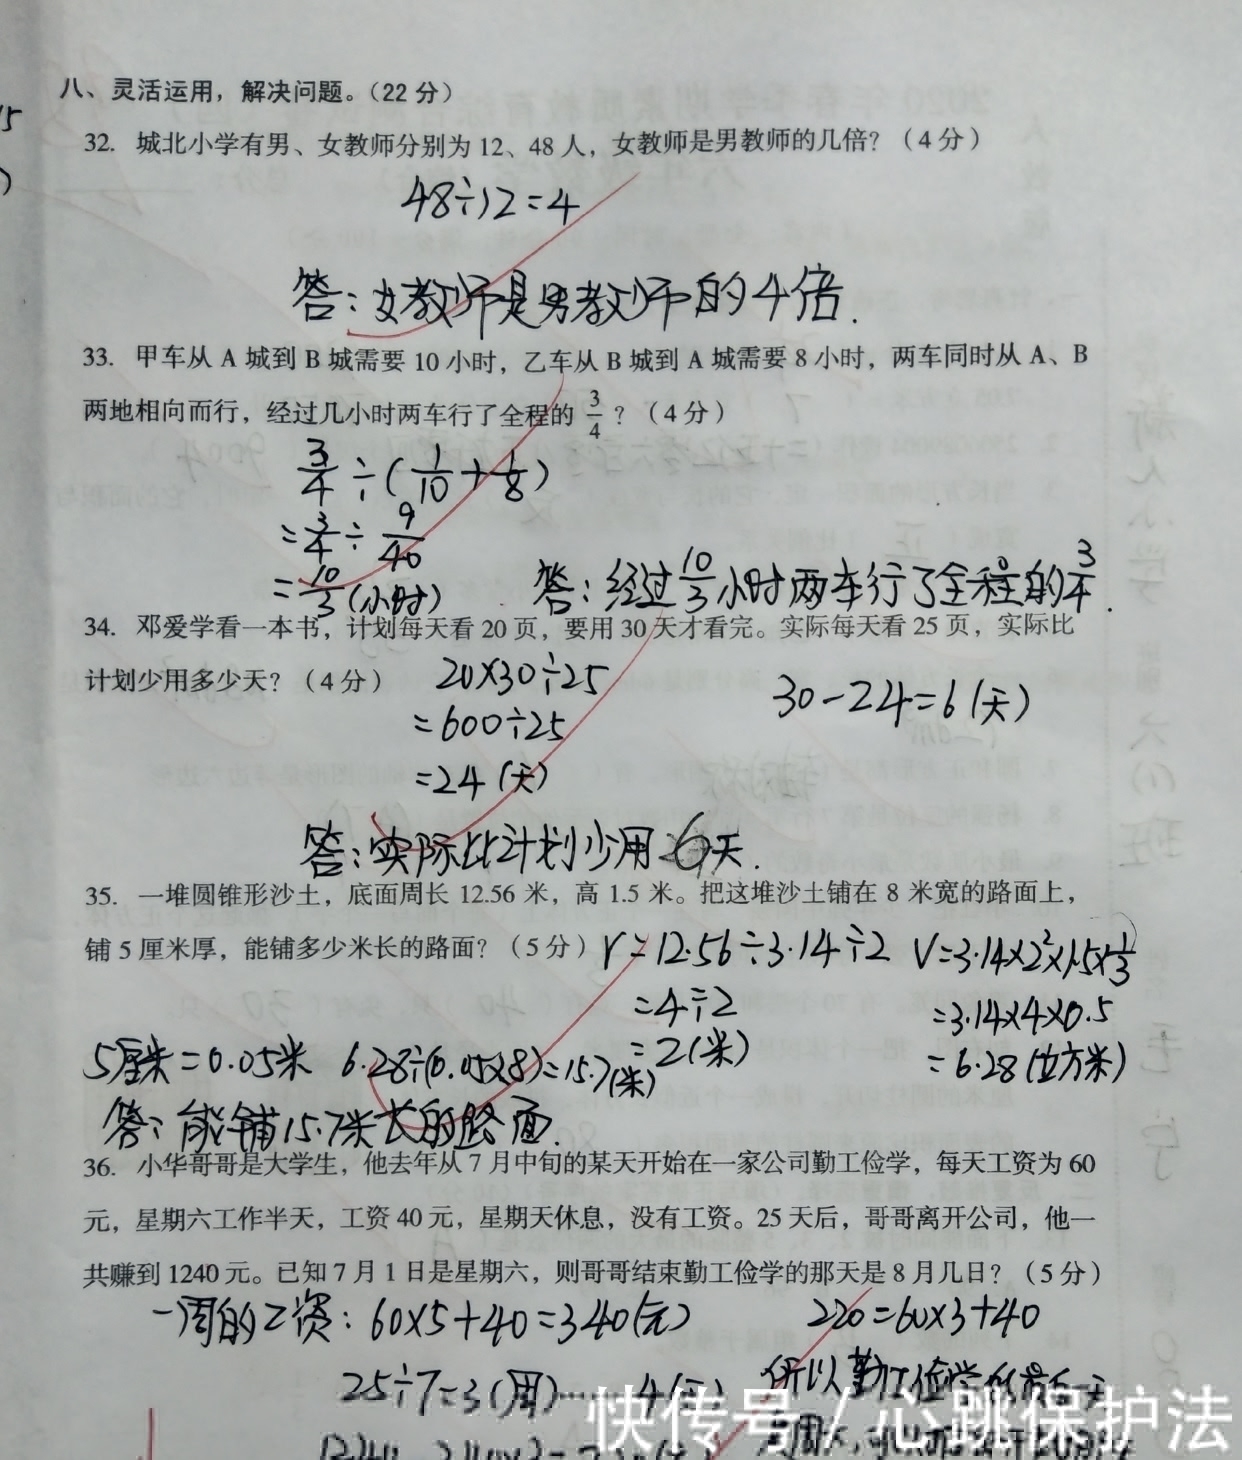 八、灵活运用，解决问题。（22 分）
32. 城北小学有男、女教师分别为 12、48 人，女教师是男教师的几倍？（4 分）
48÷12=4
答：女教师是男教师的4倍.
33. 甲车从 A 城到 B 城需要 10 小时，乙车从 B 城到 A 城需要 8 小时，两车同时从 A、B
两地相向而行，经过几小时两车行了全程的 3/4 ？（4 分）
3/4÷(1/10+1/8)
=3/4÷9/40
=10/3(小时)
答：经过10/3小时两车行了全程的3/4.
34. 邓爱学看一本书，计划每天看 20 页，要用 30 天才看完。实际每天看 25 页，实际比
计划少用多少天？（4 分）
20×30÷25
=600÷25
=24(天)
30-24=6(天)
答：实际比计划少用6天.
35. 一堆圆锥形沙土，底面周长 12.56 米，高 1.5 米。把这堆沙土铺在 8 米宽的路面上，
铺 5 厘米厚，能铺多少米长的路面？（5 分）
r=12.56÷3.14÷2
=4÷2
=2(米)
V=3.14×2²×1.5×1/3
=3.14×4×0.5
=6.28(立方米)
5厘米=0.05米 6.28÷(0.05×8)=15.7(米)
答：能铺15.7米长的路面.
36. 小华哥哥是大学生，他去年从 7 月中旬的某天开始在一家公司勤工俭学，每天工资为 60
元，星期六工作半天，工资 40 元，星期天休息，没有工资。25 天后，哥哥离开公司，他一
共赚到 1240 元。已知 7 月 1 日是星期六，则哥哥结束勤工俭学的那天是 8 月几日？（5 分）
一周的工资：60×5+40=340(元)
220=60×3+40
25÷7=3(周)……4(天)
所以勤工俭学
快传号 / 心跳保护法